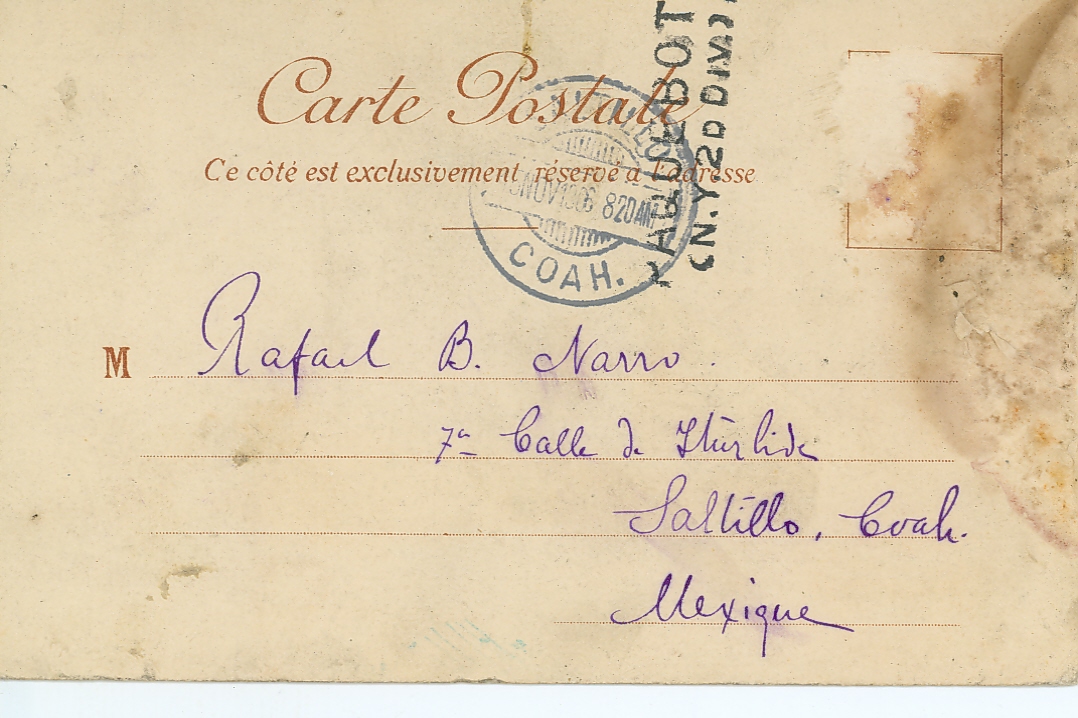 Carte Postale
Ce côté est exclusivement réservé à l'adresse
NOV 190 820AM
COAH.
PAQUEBOT
(N.Y 2D DIV.)
M Rafael B. Narro.
7a Calle de Iturbide
Saltillo, Coah.
Mexique